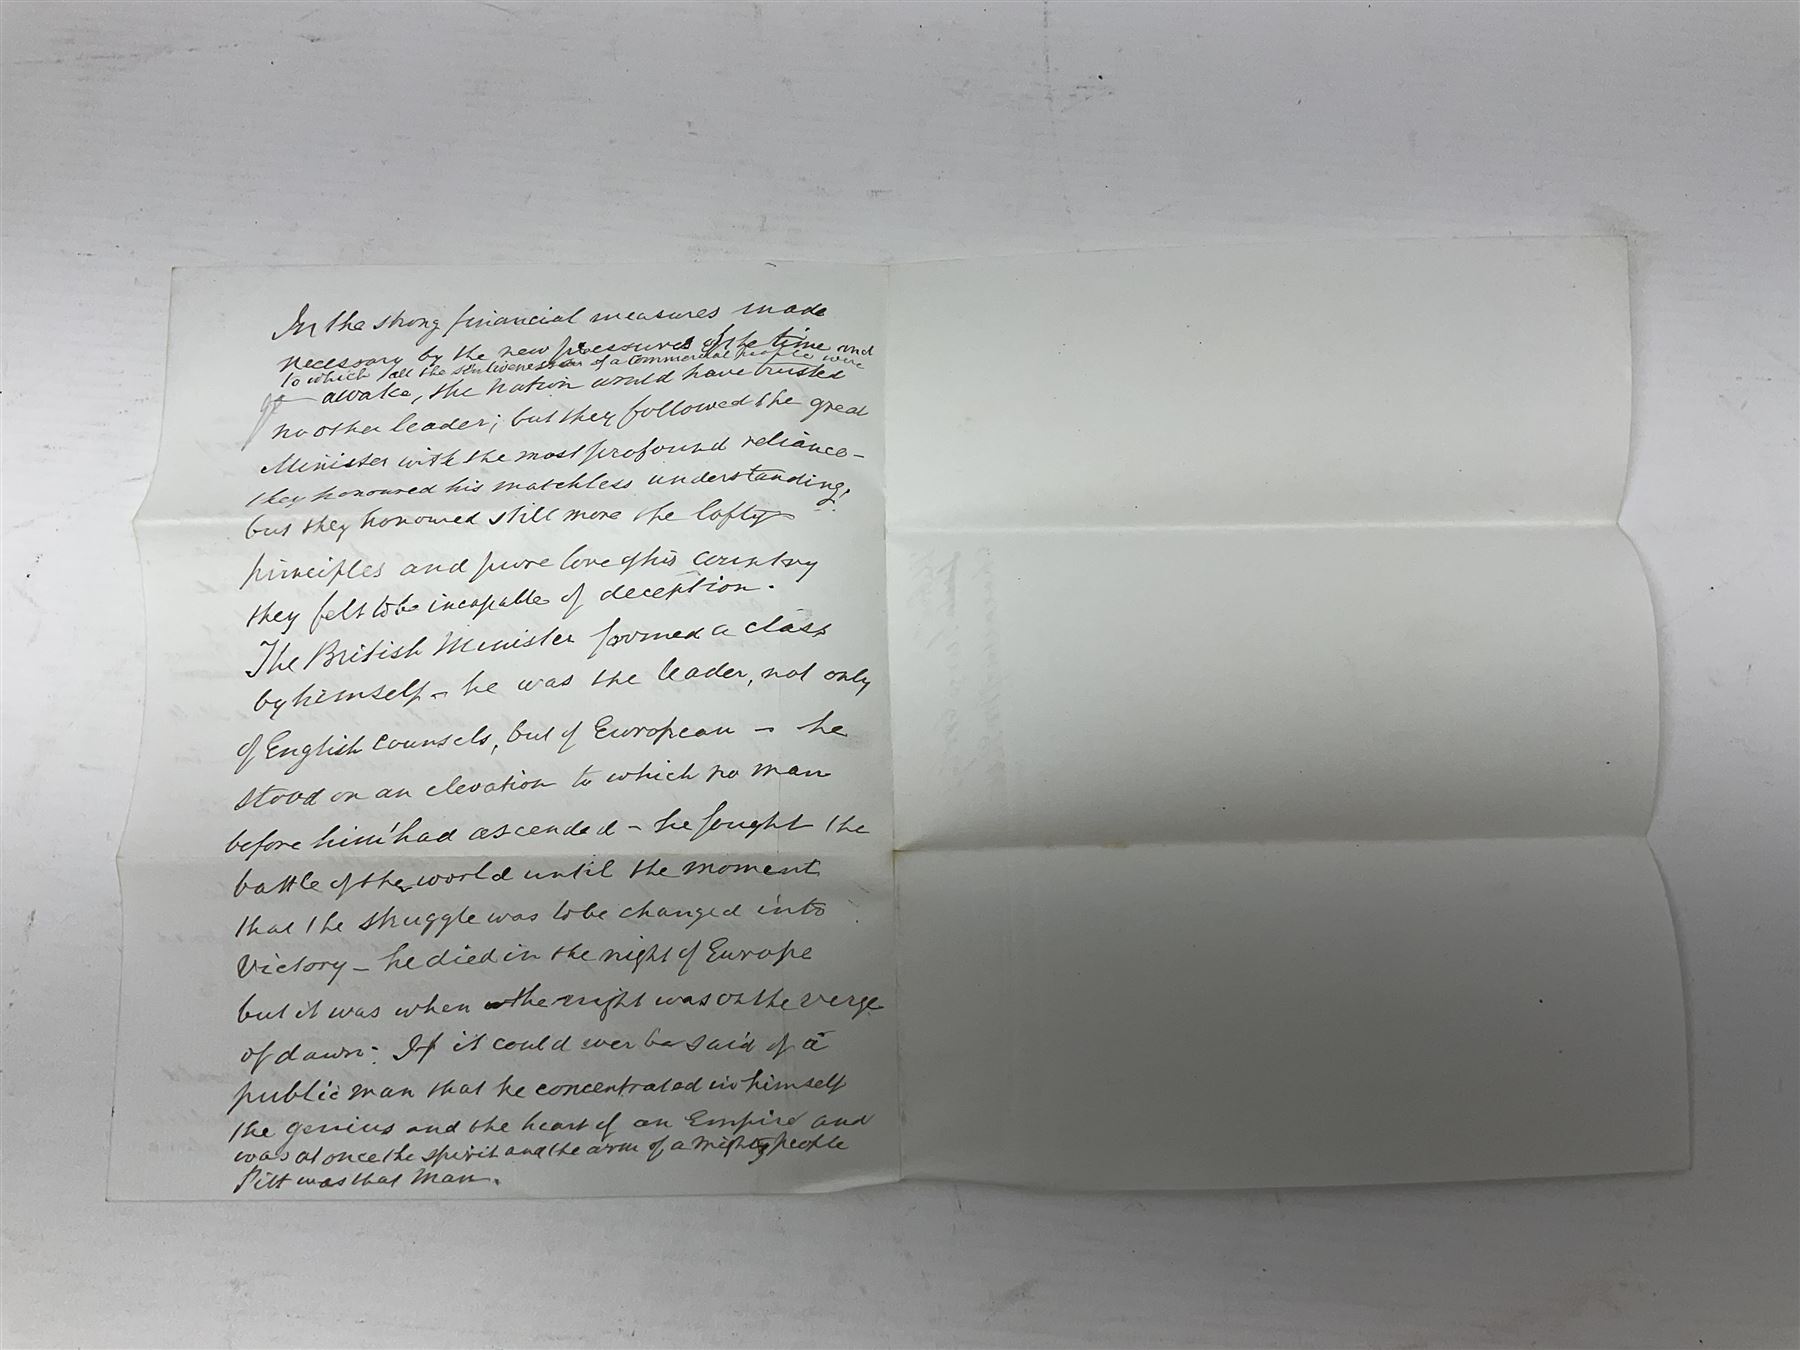 In the strong financial measures made
necessary by the new pressures of the time and
to which all the sensitivenesses of a commercial people were
awake, the nation would have trusted
no other leader; but they followed the great
Minister with the most profound reliance –
they honoured his matchless understanding;
but they honoured still more the lofty
principles and pure love of his country
they felt to be incapable of deception.
The British Minister formed a class
by himself – he was the leader, not only
of English counsels, but of European – he
stood on an elevation to which no man
before him had ascended – he fought the
battle of the world until the moment
that the struggle was to be changed into
Victory – he died in the night of Europe
but it was when the night was on the verge
of dawn. If it could ever be said of a
public man that he concentrated in himself
the genius and the heart of an Empire and
was at once the spirit and the arm of a mighty people
Pitt was that man.